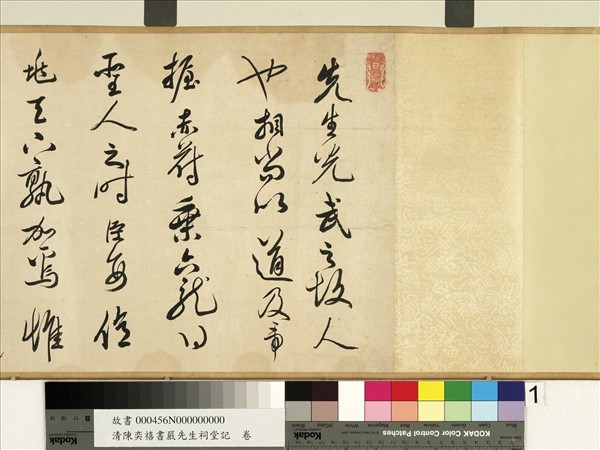 先生光武之故人
也相尚以道及帝
握赤符乘六龍得
聖人之時臣妾億
兆天下孰加焉惟
故書 000456N000000000
清陳奕禧書嚴先生祠堂記 卷
1
Kodak
KODAK Color Control Patches
Blue
Cyan
Green
Yellow
Red
Magenta
White
Black